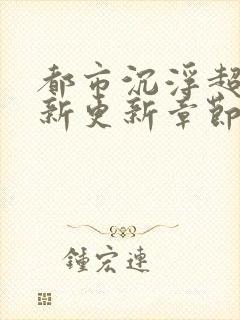 都市沉浮超
新更新章節
鍾宏連